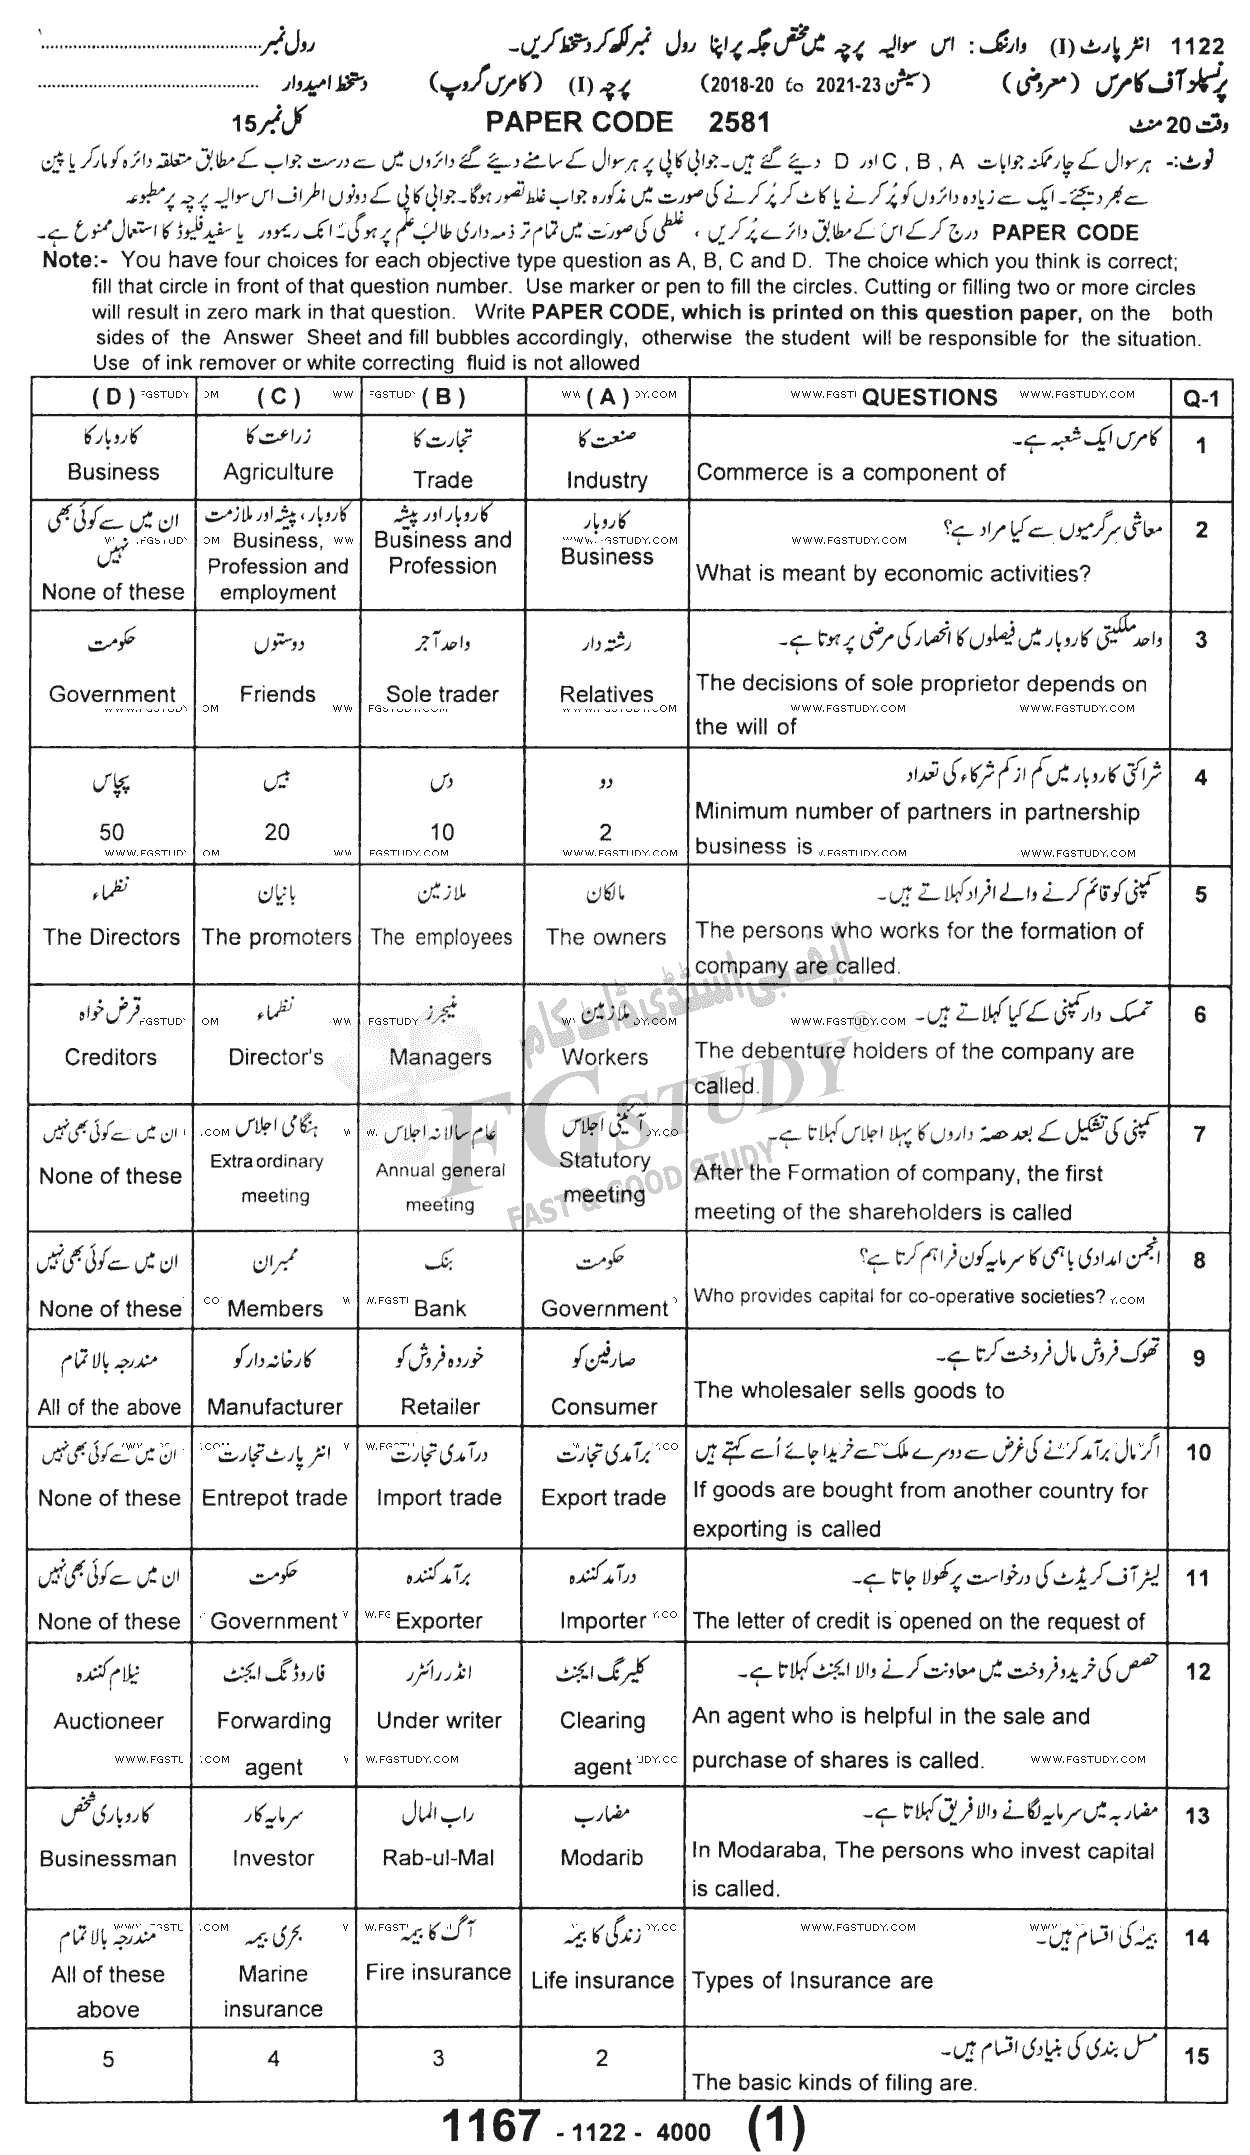 1122 انٹر پارٹ (I) وارننگ: اس سوالیہ پرچہ میں مختص جگہ پر اپنا رول نمبر لکھ کر دستخط کریں۔ رول نمبر
پرنسپلز آف کامرس (معروضی) (سیشن 2018-20 to 2021-23) پرچہ (I) (کامرس گروپ) دستخط امیدوار
وقت 20 منٹ PAPER CODE 2581 کل نمبر 15
نوٹ:- ہر سوال کے چار ممکنہ جوابات A ، B ، C اور D دیئے گئے ہیں۔ جوابی کاپی پر ہر سوال کے سامنے دیئے گئے دائروں میں سے درست جواب کے مطابق متعلقہ دائرہ کو مارکر یا پین
سے بھر دیجئے۔ ایک سے زیادہ دائروں کو پُر کرنے یا کاٹ کر پُر کرنے کی صورت میں مذکورہ جواب غلط تصور ہوگا۔ جوابی کاپی کے دونوں اطراف اس سوالیہ پرچہ پر مطبوعہ
PAPER CODE درج کر کے اس کے مطابق دائرے پُر کریں ، غلطی کی صورت میں تمام تر ذمہ داری طالب علم پر ہوگی۔ انک ریموور یا سفید فلیوڈ کا استعمال ممنوع ہے۔
Note:- You have four choices for each objective type question as A, B, C and D. The choice which you think is correct;
fill that circle in front of that question number. Use marker or pen to fill the circles. Cutting or filling two or more circles
will result in zero mark in that question. Write PAPER CODE, which is printed on this question paper, on the both
sides of the Answer Sheet and fill bubbles accordingly, otherwise the student will be responsible for the situation.
Use of ink remover or white correcting fluid is not allowed
(D) (C) (B) (A) QUESTIONS Q-1
کاروبار کا زراعت کا تجارت کا صنعت کا کامرس ایک شعبہ ہے۔ 1
Business Agriculture Trade Industry Commerce is a component of
ان میں سے کوئی بھی نہیں کاروبار، پیشہ اور ملازمت کاروبار اور پیشہ کاروبار معاشی سرگرمیوں سے کیا مراد ہے؟ 2
None of these Business, Profession and employment Business and Profession Business What is meant by economic activities?
حکومت دوستوں واحد آجر رشتہ دار واحد ملکیتی کاروبار میں فیصلوں کا انحصار کی مرضی پر ہوتا ہے۔ 3
Government Friends Sole trader Relatives The decisions of sole proprietor depends on
the will of
پچاس بیس دس دو شراکتی کاروبار میں کم از کم شرکاء کی تعداد 4
50 20 10 2 Minimum number of partners in partnership
business is
نظماء بانیان ملازمین مالکان کمپنی کو قائم کرنے والے افراد کہلاتے ہیں۔ 5
The Directors The promoters The employees The owners The persons who works for the formation of
company are called.
قرض خواہ نظماء منیجرز ملازمین تمسک دار کمپنی کے کیا کہلاتے ہیں۔ 6
Creditors Director's Managers Workers The debenture holders of the company are
called.
ان میں سے کوئی بھی نہیں ہنگامی اجلاس عام سالانہ اجلاس آئینی اجلاس کمپنی کی تشکیل کے بعد حصہ داروں کا پہلا اجلاس کہلاتا ہے۔ 7
None of these Extra ordinary meeting Annual general meeting Statutory meeting After the Formation of company, the first
meeting of the shareholders is called
ان میں سے کوئی بھی نہیں ممبران بنک حکومت انجمن امدادی باہمی کا سرمایہ کون فراہم کرتا ہے؟ 8
None of these Members Bank Government Who provides capital for co-operative societies?
مندرجہ بالا تمام کارخانہ دار کو خوردہ فروش کو صارفین کو تھوک فروش مال فروخت کرتا ہے۔ 9
All of the above Manufacturer Retailer Consumer The wholesaler sells goods to
ان میں سے کوئی بھی نہیں انٹر پارٹ تجارت درآمدی تجارت برآمدی تجارت اگر مال برآمد کرنے کی غرض سے دوسرے ملک سے خریدا جائے اُسے کہتے ہیں 10
None of these Entrepot trade Import trade Export trade If goods are bought from another country for
exporting is called
ان میں سے کوئی بھی نہیں حکومت برآمد کنندہ درآمد کنندہ لیٹر آف کریڈٹ کی درخواست پر کھولا جاتا ہے۔ 11
None of these Government Exporter Importer The letter of credit is opened on the request of
نیلام کنندہ فارورڈنگ ایجنٹ انڈر رائٹر کلیرنگ ایجنٹ حصص کی خرید و فروخت میں معاونت کرنے والا ایجنٹ کہلاتا ہے۔ 12
Auctioneer Forwarding agent Under writer Clearing agent An agent who is helpful in the sale and
purchase of shares is called.
کاروباری شخص سرمایہ کار راب المال مضارب مضاربہ میں سرمایہ لگانے والا فریق کہلاتا ہے۔ 13
Businessman Investor Rab-ul-Mal Modarib In Modaraba, The persons who invest capital
is called.
مندرجہ بالا تمام بحری بیمہ آگ کا بیمہ زندگی کا بیمہ بیمہ کی اقسام ہیں۔ 14
All of these above Marine insurance Fire insurance Life insurance Types of Insurance are
5 4 3 2 مسل بندی کی بنیادی اقسام ہیں۔ 15
The basic kinds of filing are.
1167 - 1122 - 4000 (1)
ایف جی اسٹڈی ڈاٹ کام
FG STUDY
FAST & GOOD STUDY
WWW.FGSTUDY.COM